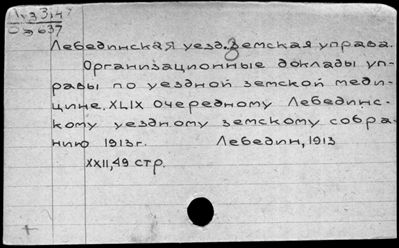 637
Лебединская уезд. земская управа.
Организационные доклады уп-
равы по уездной земской меди-
цине, XLIX очередному Лебединс-
кому уездному земскому собра-
нию 1913г. Лебедин, 1913
XXII, 49 стр.